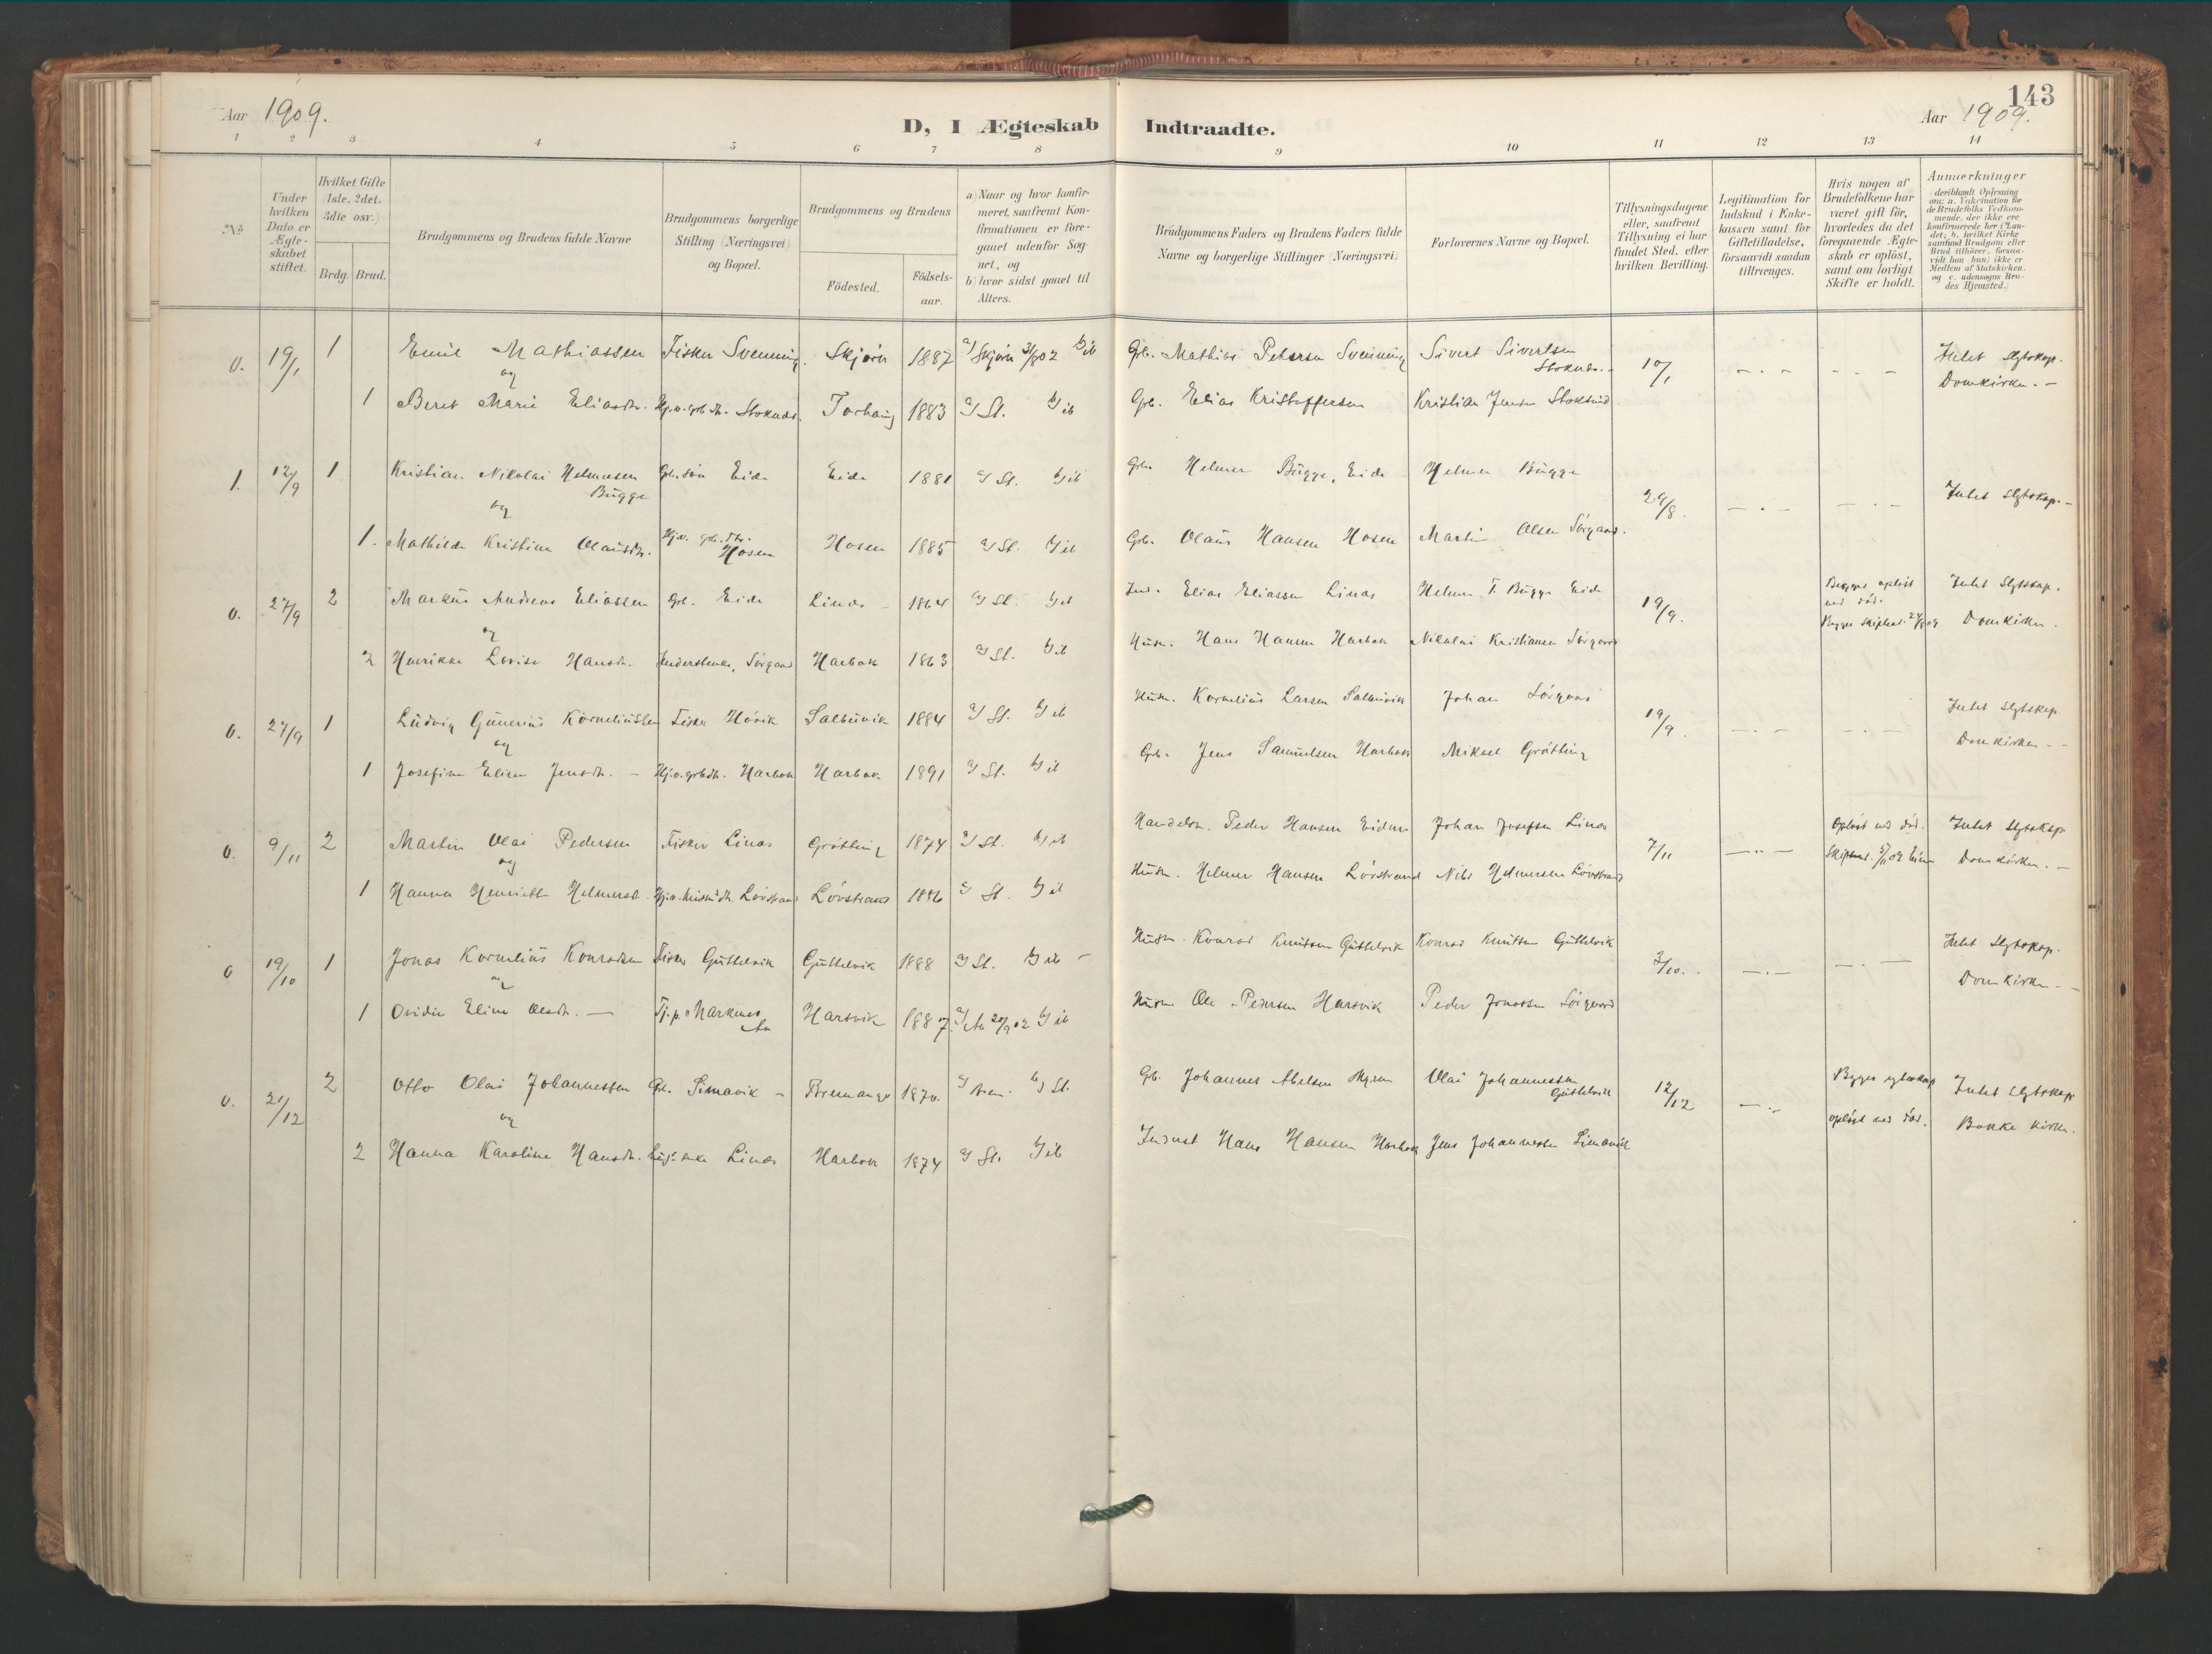 143
Aar 1909.
D, I Ægteskab Indtraadte.
Aar 1909.
1 2 3 4 5 6 7 8 9 10 11 12 13 14
No
Under hvilken Dato er Ægteskabet stiftet.
Hvilket Gifte (1ste, 2det. 3die osv.)
Brdg. Brud.
Brudgommens og Brudens fulde Navne
Brudgommens borgerlige Stilling (Næringsvei) og Bopæl.
Brudgommens og Brudens
Födested.
Födsels-aar.
a) Naar og hvor konfirmeret, saafremt Konfirmationen er foregaaet udenfor Sognet, og
b) hvor sidst gaaet til Alters.
Brudgommens Faders og Brudens Faders fulde Navne og borgerlige Stillinger (Næringsvei)
Forlovernes Navne og Bopæl.
Tillysningsdagene eller, saafremt Tillysning ei har fundet Sted, efter hvilken Bevilling.
Legitimation for Indskud i Enkekassen samt for Giftetilladelse, forsaavidt saadan tiltrænges.
Hvis nogen af Brudefolkene har været gift för, hvorledes da det foregaaende Ægteskab er oplöst, samt om lovligt Skifte er holdt.
Anmærkninger
(deriblandt Oplysning om: a. Vakcination for de Brudefolks Vedkommende, der ikke ere konfirmerede her i Landet; b. hvilket Kirkesamfund Brudgom eller Brud tilhörer, forsaavidt han (hun) ikke er Medlem af Statskirken, og c. udensogns Brudes Hjemsted.)
0. 19/1 1 Emil Mathiassen Fisker Svenning. Skjørn 1887 a) Skjørn 3/8 02 b) ib Grb. Mathias Petersen Svenning Sivert Sivertsen Stoksds. 10/1 - . - - . - Intet slgtskap.
og Domkirken. -
1 Beret Marie Eliasdtr. Hj.v. grb.dtr. Stoksds. Torhaug 1883 a) St. b) ib Grb. Elias Kristoffersen Kristian Jensen Stoksund
1. 12/9 1 Kristian Nikolai Helmersen Bugge Grb.søn Eide Eide 1881 a) St. b) ib Grb. Helmer Bugge, Eide Helmer Bugge
og 29/8. - . - - . - Intet slgtskap. -
1. Mathilde Kristine Olausdtr. Hj.v. grb. dtr. Hosen Hosen 1885 a) St. b) ib Grb. Olaus Hansen Hosen Martin Olsen Sörgaard.
0. 27/9 2 Markus Andreas Eliassen Grb. Eide Linds - 1864 a) St. b) ib Ind. Elias Eliassen Linds Helmer T. Bugge Eide 19/9. Begges oplöst ved död. Intet slgtskap.
og Domkirken.
2 Henrikke Lovise Hansdtr. Sörgaard Harbak 1863 a) St. b) ib Husm. Hans Hansen Harbak Nikolai Kristiansen Sörgaard
0. 27/9 1 Ludvig Gunerius Korneliussen Fisker Hövik Salbuvik 1884 a) St. b) ib Husm. Kornelius Larsen Salbuvik Johan Sörgaard 19/9. - . - - . - Intet slgtskap
og Domkirken. -
1 Josefine Eline Jensdtr. - Hj.v. grb.dtr. Harbak Harbak 1891 a) St. b) ib Grb. Jens Samuelsen Harbak Mikael Gröttling
0. 9/11 2 Martin Olai Pedersen Fisker Linds Gröttling 1874 a) St. b) ib Handelsm. Peder Hansen Johan Josefsen Linds 7/11 - . - Oplöst ved död. Intet slgtskap
og Domkirken. -
1 Hanna Henriette Helmersd. Lövstrand Lövstrand 1886 a) St. b) ib Husm. Helmer Hansen Lövstrand Nils Helmersen Lövstrand
0 19/10 1 Jonas Kornelius Konradsen Fisker Guttelvik Guttelvik 1888 a) St. b) ib - Husm. Konrad Knutsen Guttelvik Konrad Knutsen Guttelvik 3/10. - . - - . - Intet slgtskap.
og Domkirken. -
1 Ovidie Eline Olesdtr. - Tj.p. Markness Harsvik 1887. b) ib Husm. Ole Pedersen Harsvik Peder Jonassen Sörgaard
0. 21/12 2 Otto Olai Johannessen Grb. Simavik - Bremanger 1870. b) St. Gb. Johannes Abelsen Olai Johannessen Guttelvik 12/12 - . - Begges egteskap Intet slgtskap
og oplöst ved död. Bakke kirke.
2 Hanna Karoline Hansdtr. enke Linds Harbak 1874 a) St. b) ib Indust Hans Hansen Harbak Jens Johannessen Simavik